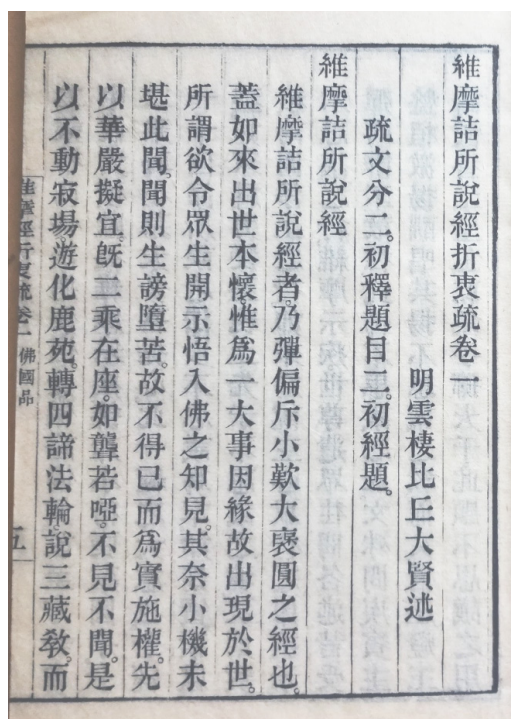 維摩詰所說經折衷疏卷一
明雲棲比丘大賢述
疏文分二。初釋題目三。初經題。
維摩詰所說經
維摩詰所說經者。乃彈偏斥小歎大褒圓之經也。
蓋如來出世本懷。惟爲一大事因緣故出現於世。
所謂欲令眾生開示悟入佛之知見。其奈小機未
堪此聞。聞則生謗墮苦。故不得已而爲實施權。先
以華嚴擬宜。旣二乘在座。如聾若啞。不見不聞。是
以不動寂場。遊化鹿苑。轉四諦法輪。說三藏敎。而
維摩經折衷疏卷一 佛國品 五